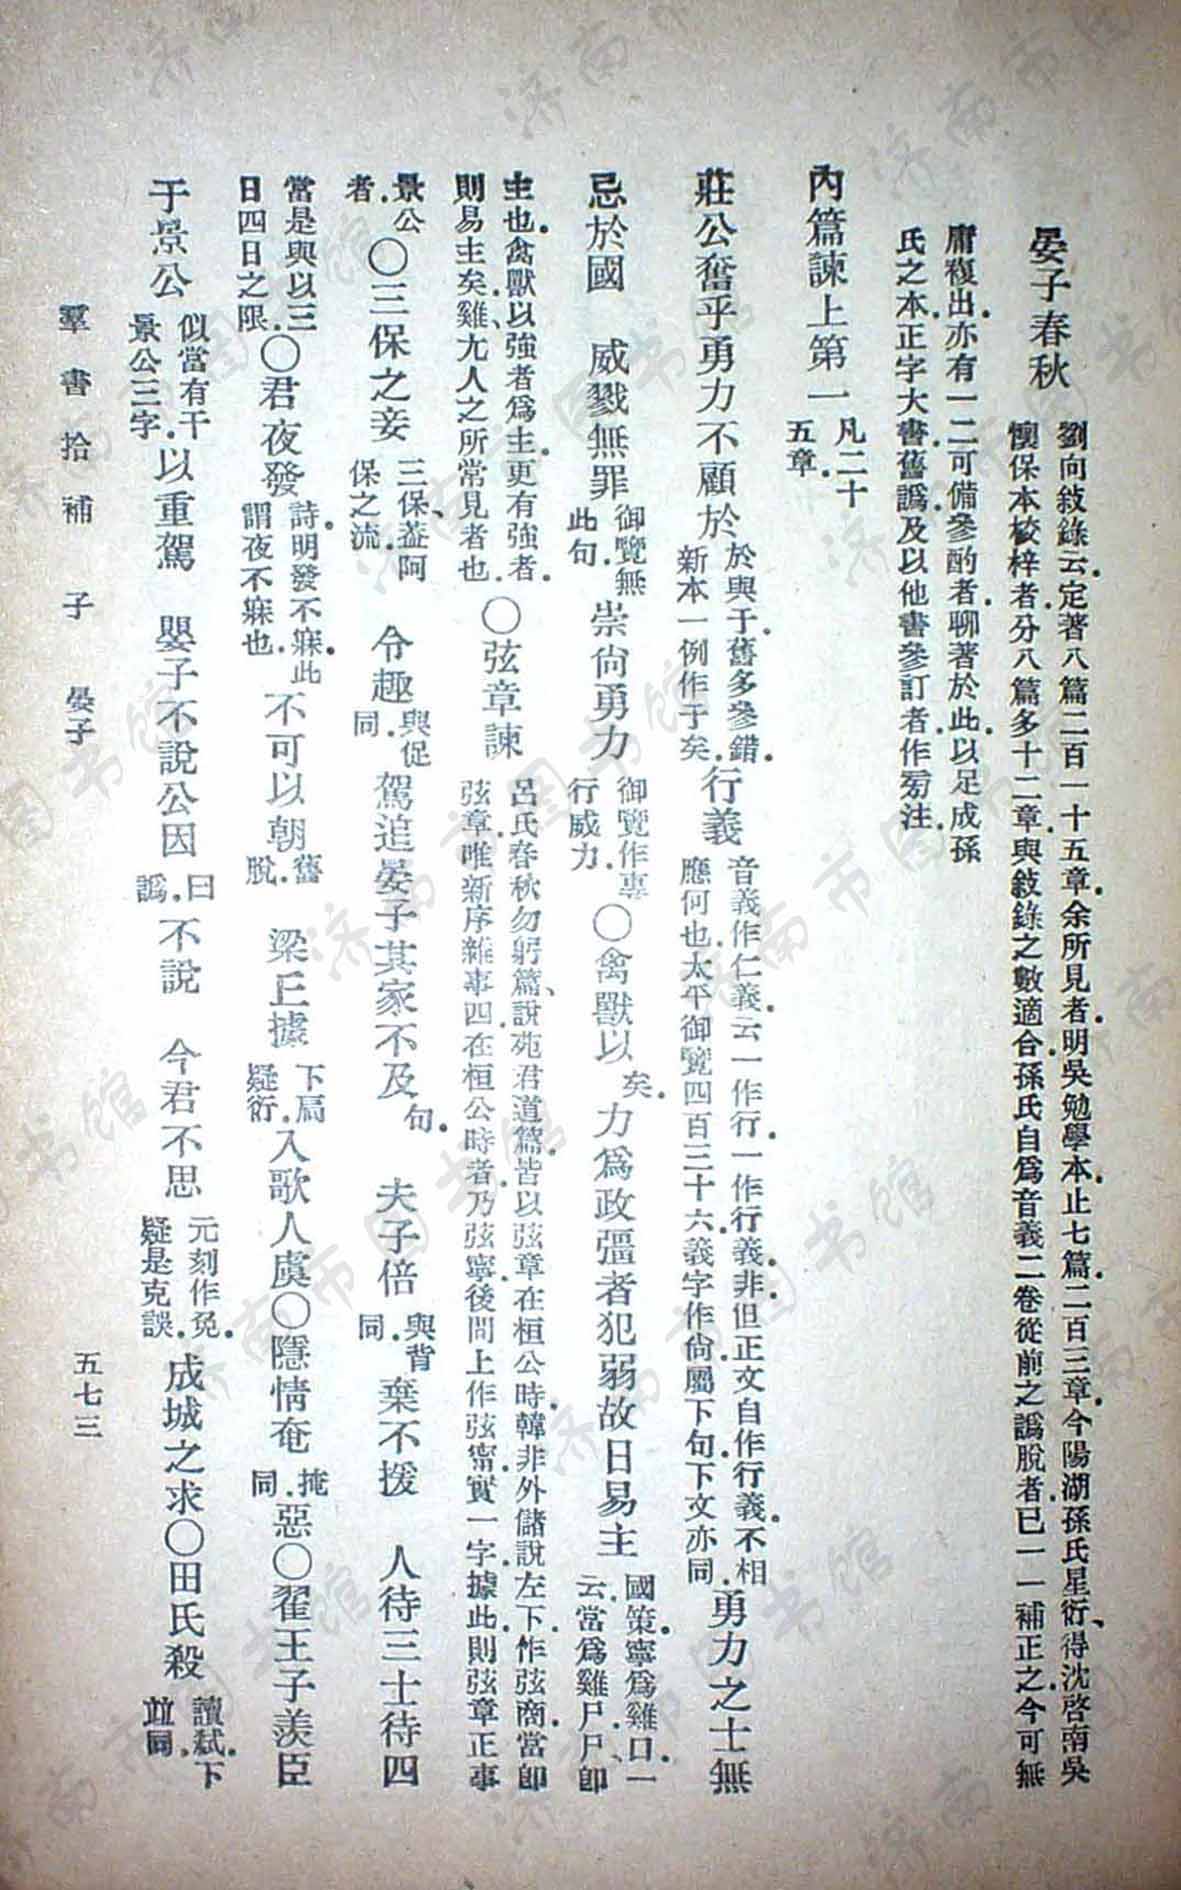 晏子春秋 劉向敍錄云.定著八篇二百一十五章.余所見者.明吳勉學本.止七篇.二百三章.今陽湖孫氏星衍、得沈啓南吳
懷保本校梓者.分八篇多十二章.與敍錄之數適合.孫氏自爲音義二卷從前之譌脫者.已一一補正之.今可無
庸複出.亦有一二可備參酌者.聊著於此.以足成孫
氏之本.正字大書.舊譌及以他書參訂者.作旁注.
內篇諫上第一 凡二十五章.
莊公奮乎勇力不顧於 於與于.舊多參錯.新本一例作于矣. 行義 音義作仁義.云一作行.一作行義.非.但正文自作行義.不相應何也.太平御覽四百三十六.義字作尙.屬下句.下文亦同. 勇力之士無
忌於國 威戮無罪 御覽無此句. 崇尙勇力 御覽作專行威力. 〇禽獸以 矣. 力爲政彊者犯弱故日易主 國策寧爲雞口.一云.當爲雞尸.尸、卽
主也.禽獸以強者爲主.更有強者.則易主矣.雞、尤人之所常見者也. 〇弦章諫 呂氏春秋勿躬篇、說苑君道篇.皆以弦章在桓公時.韓非外儲說左下.作弦商.當卽弦章.唯新序雜事四.在桓公時者.乃弦寧.後問上作弦甯.實一字.據此.則弦章正事
景公者. 〇三保之妾 三保、蓋阿保之流. 令趣 與促同. 駕追晏子其家不及 句. 夫子倍 與背同. 棄不援 人待三士待四
當是與以三日四日之限. 〇君夜發 詩.明發不寐.此謂夜不寐也. 不可以朝 舊脫. 梁丘據 下扃疑衍. 入歌人虞〇隱情奄 掩同. 惡〇翟王子羨臣
于景公 似當有干景公三字. 以重駕 嬰子不說公因 曰譌. 不說 今君不思 元刻作免.疑是克誤. 成城之求〇田氏殺 讀弒.下並同.
羣書拾補 子 晏子 五七三